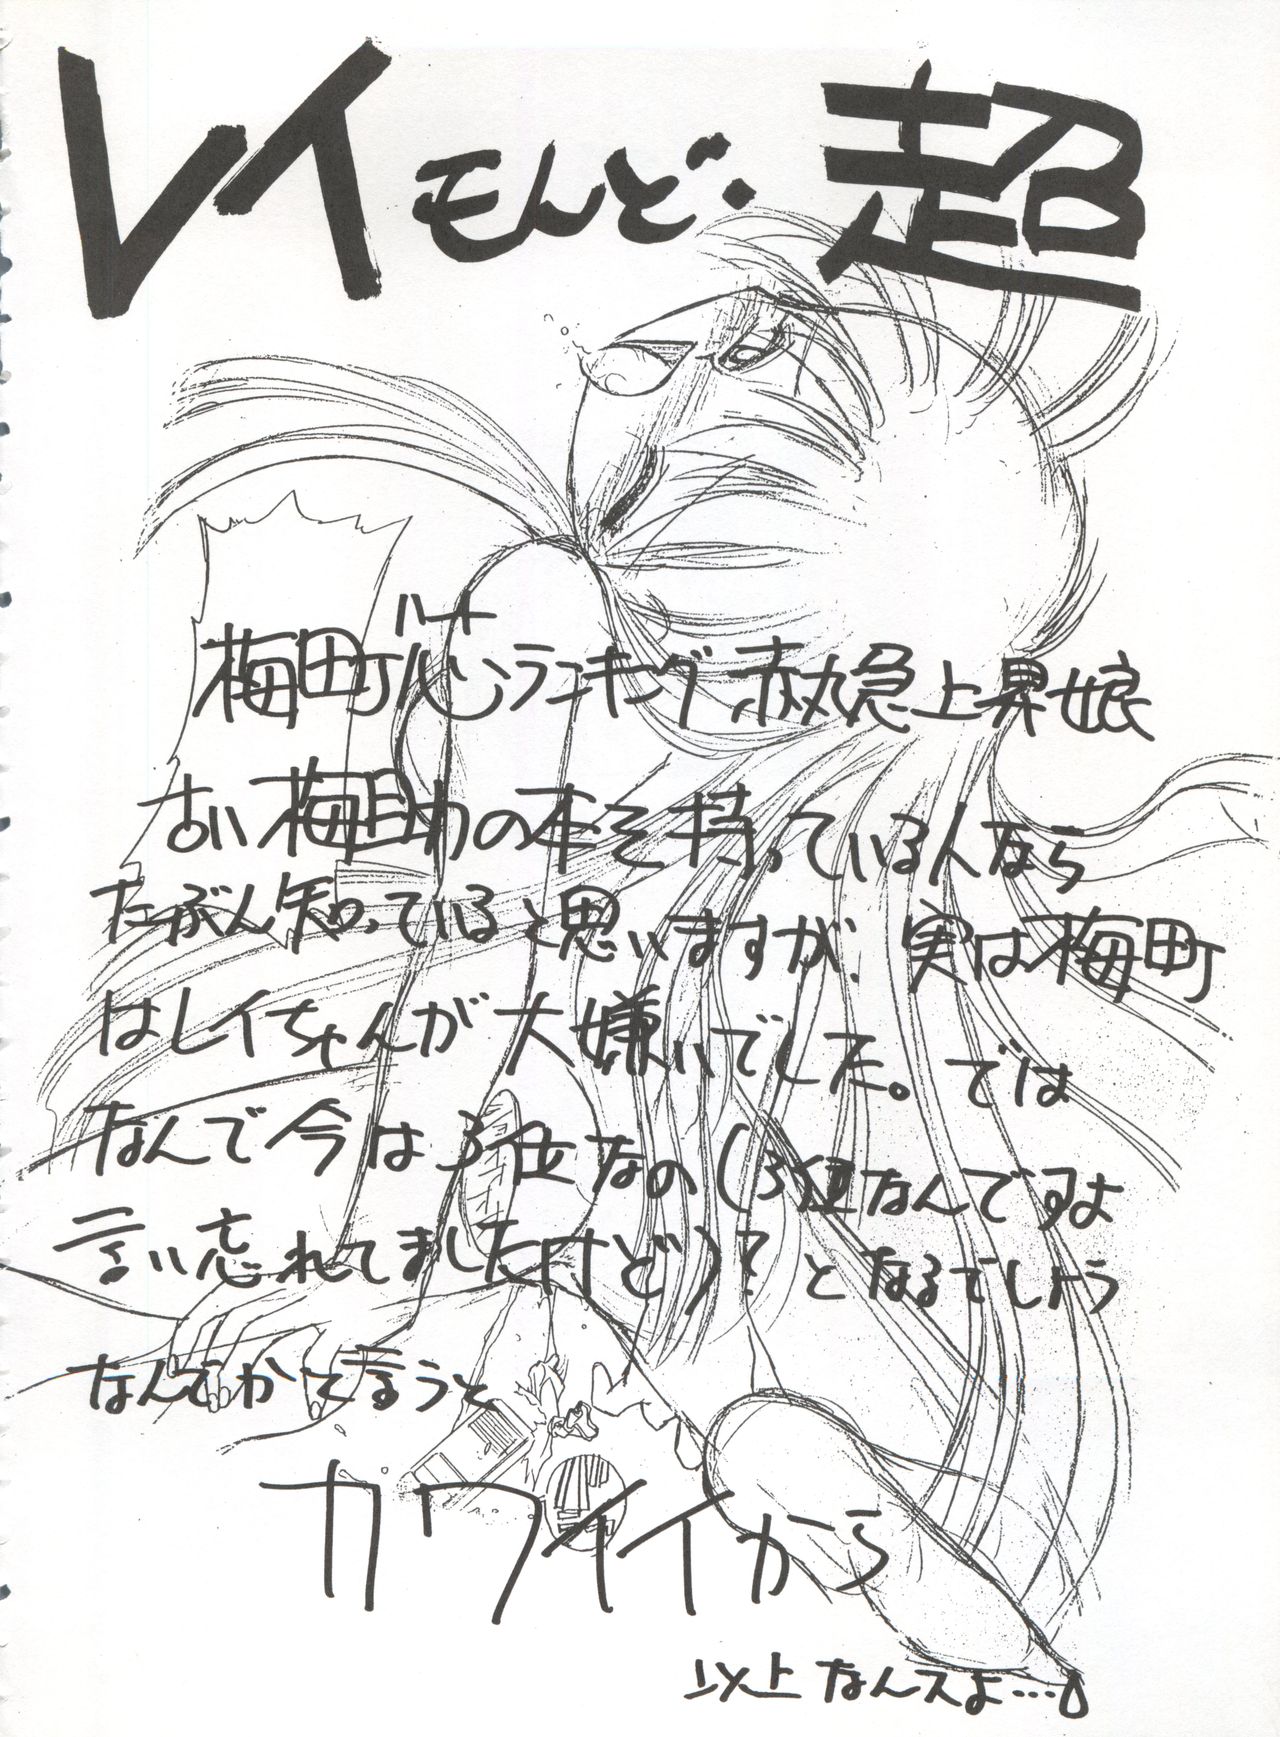 レイもんど・超
梅田町ハート心ランキング 赤丸急上昇娘
古い梅助の本を持っている人なら
たぶん知っていると思いますが、実は梅町
はレイちゃんが大嫌いでした。では
なんで今は3位なの(3位なんですよ
言い忘れてましたけど)?となるでしょう
なんでかて言うと
カワイイから
以上なんスよ…。